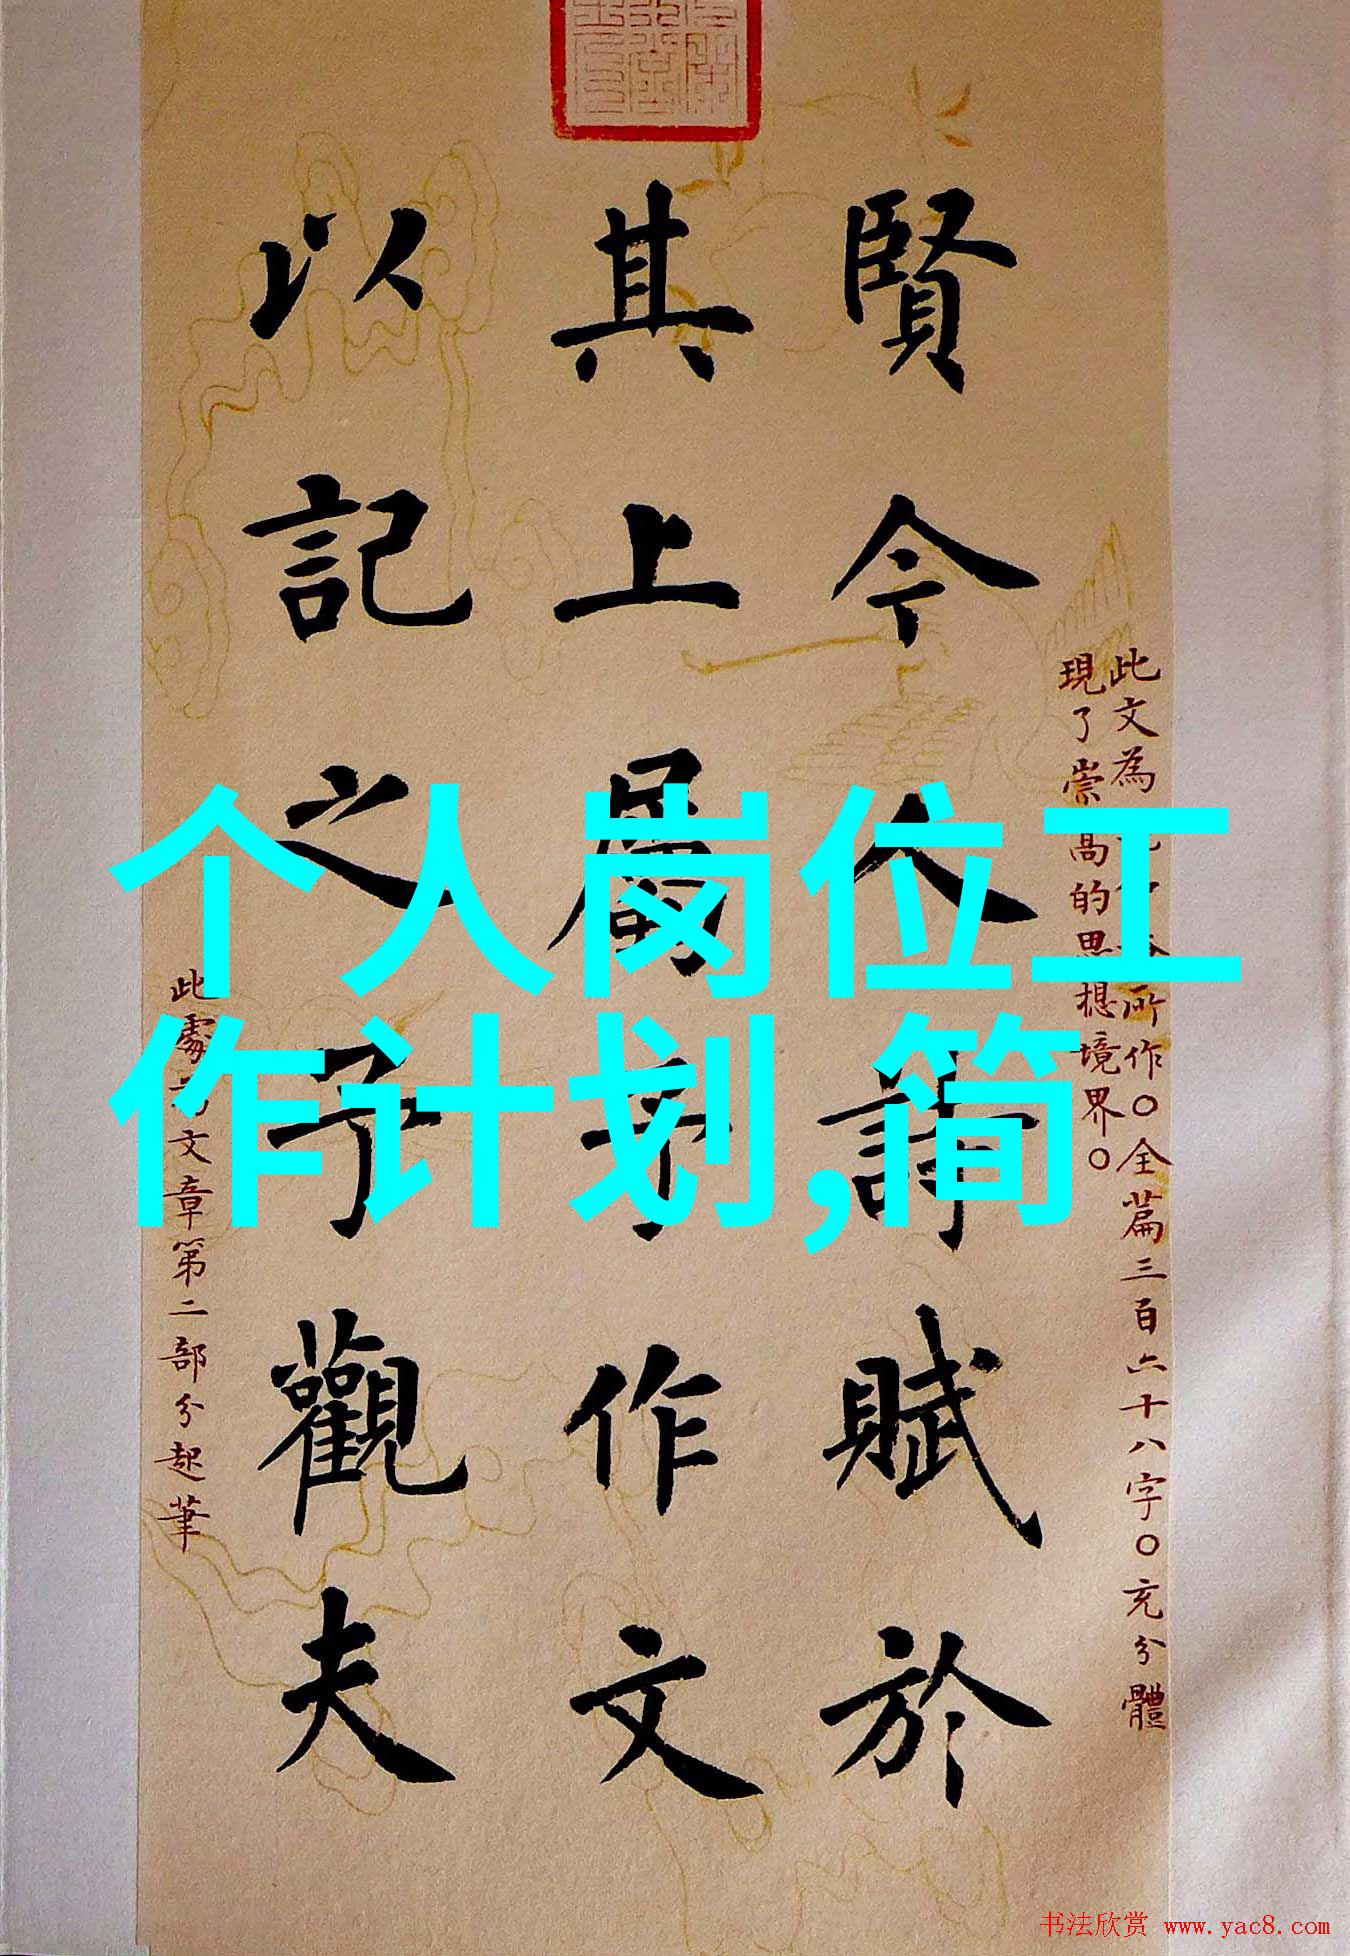 此文為所作○全篇三百六十八字○充分體
現了崇高的思想境界○
賢今人詩賦於
其上屬予作文
以記之予觀夫
此處為文章第二部分起筆
个人岗位工
作计划,简
书法欣赏 www.yac8.com